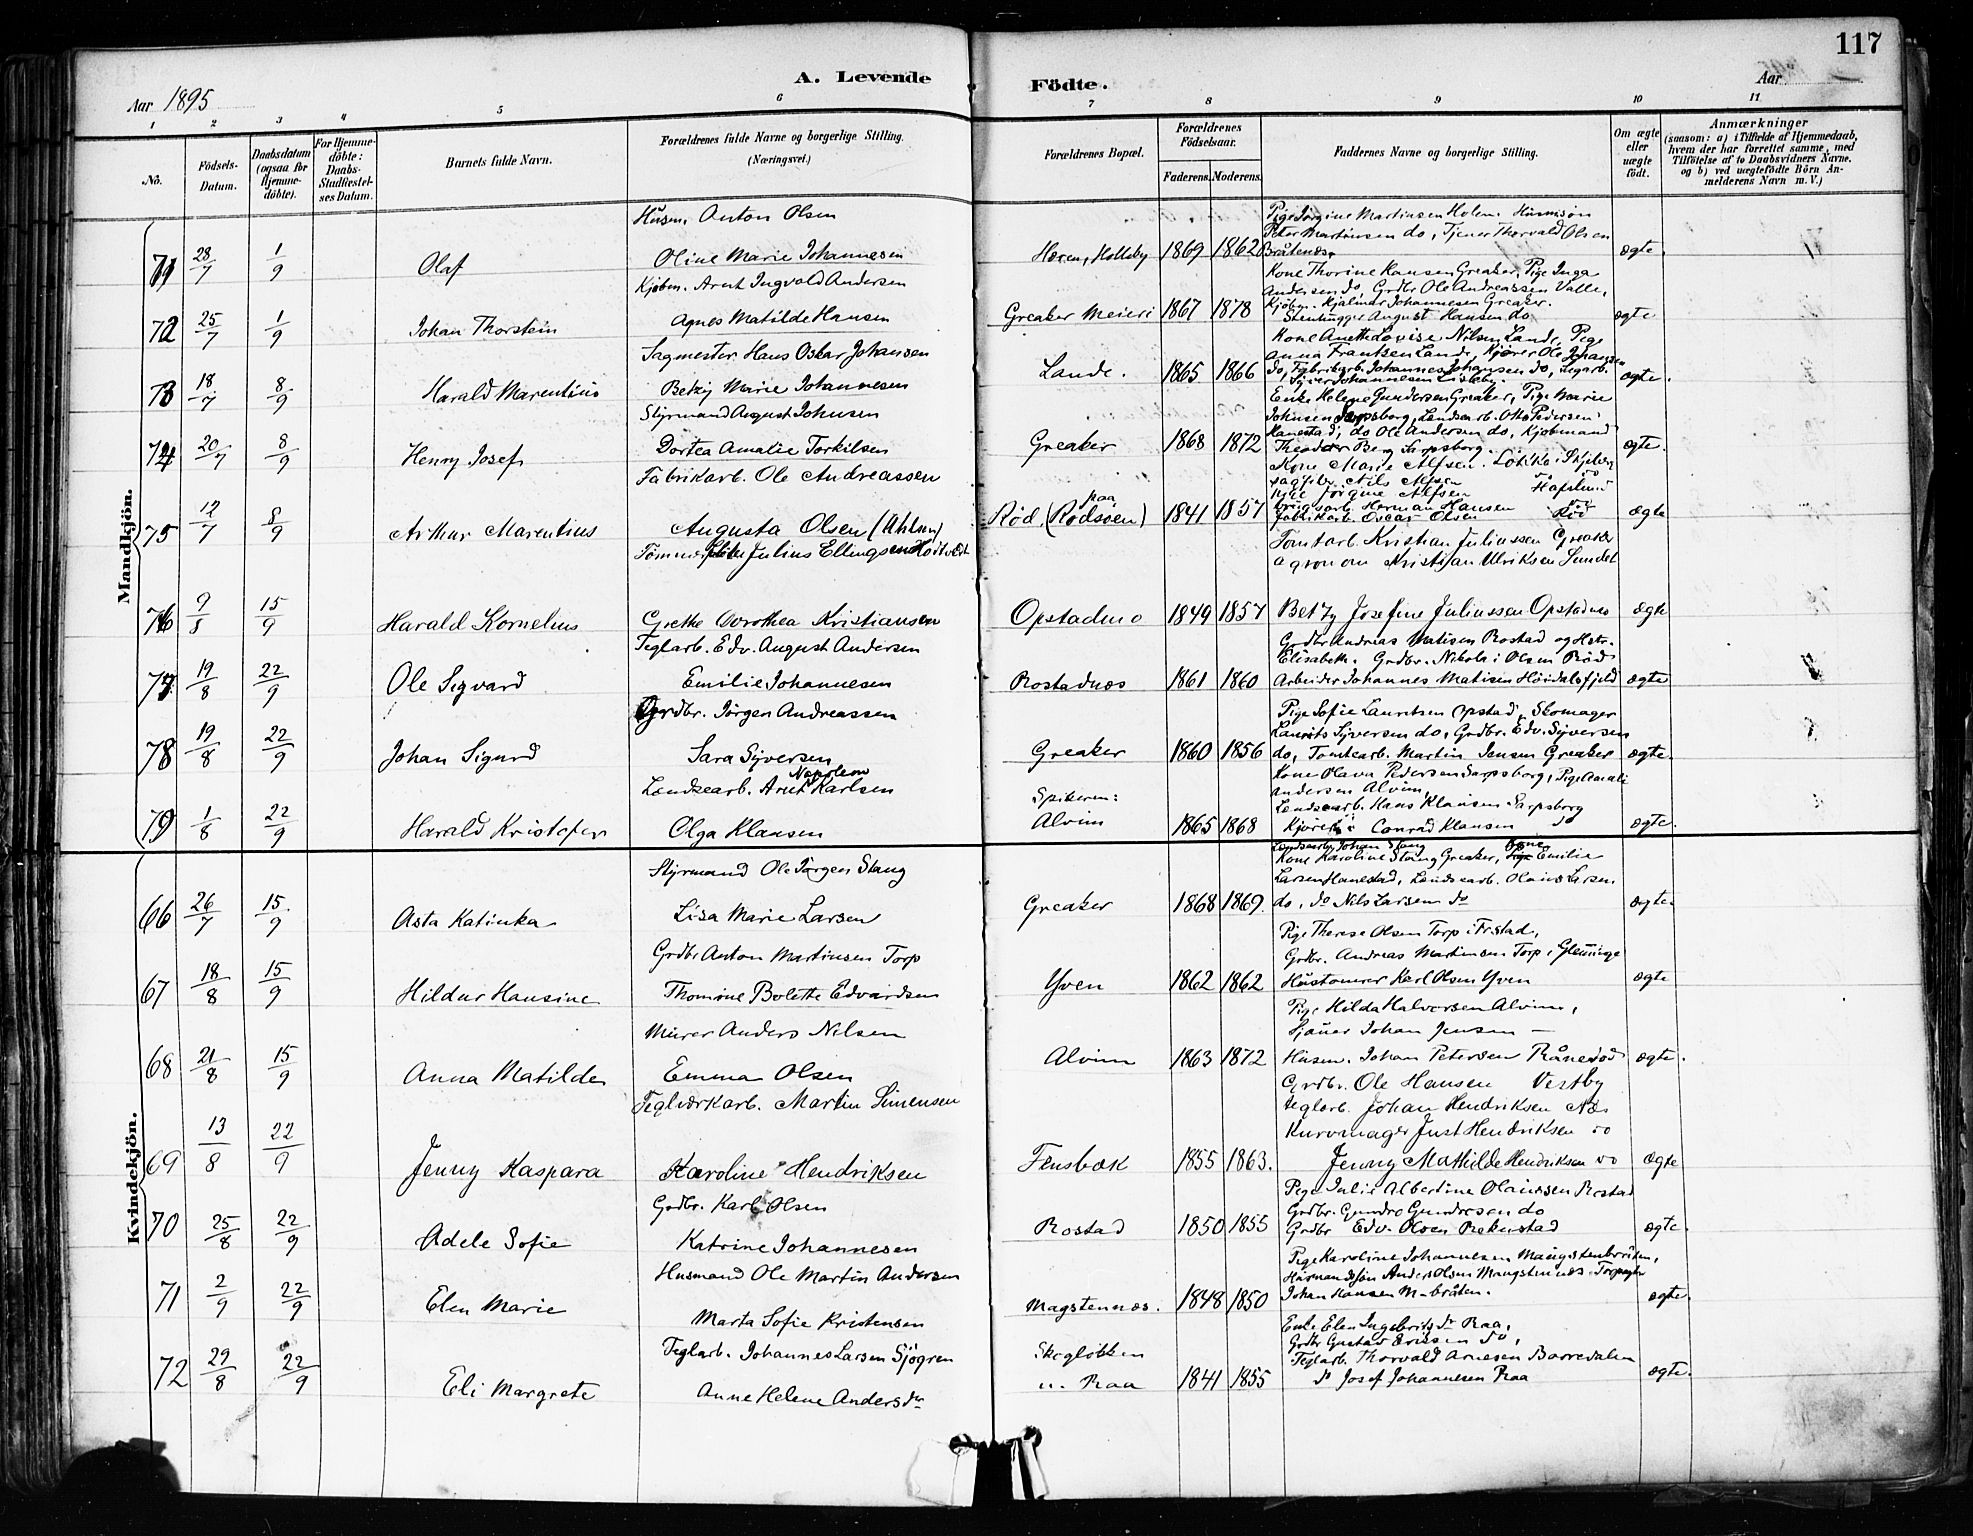 117
A. Levende
Födte.
Aar 1895
Aar
1 2 3 4 5 6 7 8 9 10 11
No.
Födsels-Datum.
Daabsdatum (ogsaa for Hjemme-döbte).
For Hjemme-döbte: Daabs-Stadfæstel-ses Datum.
Barnets fulde Navn.
Forældrenes fulde Navne og borgerlige Stilling. (Næringsvei.)
Forældrenes Bopæl.
Forældrenes Födselsaar.
Faderens. Moderens.
Faddernes Navne og borgerlige Stilling.
Om ægte eller uægte födt.
Anmærkninger
(saasom: a) i Tilfælde af Hjemmedaab, hvem der har forrettet samme, med Tilföielse af to Daabsvidners Navne. og b) ved uægtefödte Börn Anmelderens Navn m. V.)
Mandkjön.
Husm. Anton Olsen
Pige Jörgine Martinsen Holm. Husmsön
Peter Martinsen do, Tjener Thorvald Olsen
71 28/7 1/9 Olaf Oline Marie Johannesen Hæren, Holleby 1869 1862 Bråtenæs. ægte.
Kjöbm. Arnt Ingvald Andersen
Kone Thorine Hansen Greaker, Pige Inga
Andersen do, Grdbr Ole Andreassen Valle,
Kjöbm. Hjalmar Johannesen Greaker.
72 25/7 1/9 Johan Thorstein Agnes Matilde Hansen Greaker Meieri 1867 1878 Stenhugger August Hansen do ægte
Sagmester Hans Oskar Johansen
Kone Anette Lovise Nilsen Lande, Pige
Anna Frantzen Lande, Kjörer Ole Johansen
73 18/7 8/9 Harald Marentius Betzy Marie Johannesen Lande. 1865 1866 do, Fabrikarb. Johannes Johansen do, ægte.
Styrmand August Johnsen
Enke Helene Gundersen Greaker, Pige Marie
Johnsen Sarpsborg, Landsearb. Otto Pedersen
Hanestad, do Ole Andersen do, Kjöbmand
74 20/7 8/9 Henry Josef Dortea Amalie Torkilsen Greaker 1868 1872 Theodor Berg Sarpsborg. ægte.
Fabrikarb. Ole Andreassen
Kone Marie Alfsen. Lökke i Skjeberg
Nils Alfsen
Pige Jörgine Alfsen Hafslund
75 12/7 8/9 Arthur Marentius Augusta Olsen (Uhlsen) Rød (paa Rødssøen) 1841 1857 Herman Hansen ægte
Fabrikarb. Oscar Olsen Rød
Julius Ellingsen
Tomtarb. Kristian Juliussen Greaker
Agronom Kristian Ulriksen Sundet
76 9/8 15/9 Harald Kornelius Grethe Dorothea Kristiansen Opstadmo 1849 1857 Betzy Josefine Juliussen Opstadmo ægte
Teglarb. Edv. August Andersen
Grdbr Andreas Matisen Rostad og Hstr.
Elisabeth. Grdbr. Nikolai Olsen Röd
77 19/8 22/9 Ole Sigvard Emilie Johannesen Rostadnæs 1861 1860 Arbeider Johannes Matisen Höidalsfjeld ægte
Grdbr. Jörgen Andreassen
Pige Sofie Lauritsen Opstad, Skomager
Laurits Syversen do, Grdbr. Edv. Syversen
78 19/8 22/9 Johan Sigurd Sara Syversen Greaker 1860 1856 do, Tomtearb. Martin Jensen Greaker ægte.
Landsearb. Arnt Napoleon Karlsen
Kone Olava Pedersen Sarpsborg, Pige Amalie
Andersen Alvim,
Landsearb. Hans Klausen Sarpsborg
79 1/8 22/9 Harald Kristofer Olga Klausen Spikeren: Alvim 1865 1868 Kjörer Conrad Klausen do ægte.
Kvindekjön.
Landsearb. Johan Stang
Styrmand Ole Jörgen Stang
Kone Karoline Stang Greaker, Kone Emilie
Larsen Hanestad, Landsearb. Olaus Larsen
66 26/7 15/9 Asta Katinka Lisa Marie Larsen Greaker 1868 1869. do, do Nils Larsen do ægte.
Grdbr Anton Martinsen Torp
Pige Therese Olsen Torp i Frstad,
Grdbr. Andreas Martinsen Torp i Glemminge
67 18/8 15/9 Hildur Hansine Thomine Bolette Edvardsen Yven 1862 1862 Hustömrer Karl Olsen Yven ægte
Murer Anders Nilsen
Pige Hilda Halvorsen Alvim,
Sjauer Johan Jensen —
68 21/8 15/9 Anna Matilde Emma Olsen Alvim 1863 1872 Husm. Johan Petersen Rånesød ægte.
Teglverkarb. Martin Simensen
Grdbr. Ole Hansen Vestby
teglarb. Johan Hendriksen Næs
Kurvmager Just Hendriksen do
69 13/8 22/9 Jenny Kaspara Karoline Hendriksen Fensbæk 1855 1863. Jenny Mathilde Hendriksen do ægte
Grdbr. Karl Olsen
Pige Julie Albertine Olaussen Rostad
Grdbr. Gundro Gundresen do
70 25/8 22/9 Adele Sofie Katrine Johannesen Rostad 1850 1855 Grdbr Edv. Olsen Rekustad ægte.
Husmand Ole Martin Andersen
Pige Karoline Johannesen Mangstenbråten,
Husmandssön Anders Olsen Mangstennæs
71 2/9 22/9 Elen Marie Marta Sofie Kristensen Magstennæs. 1848 1850 Johan Hansen M-bråten. ægte.
Teglarb. Johannes Larsen Sjögren
Enke Elen Ingebrigtsdr Raa,
Grdbr Gustav Eriksen do,
Teglarb. Thorvald Arnesen Borredalen
72 29/8 22/9 Eli Margrete Anne Helene Andersdr Skoglökken u. Raa 1841 1855 do Josef Johannesen Raa ægte.